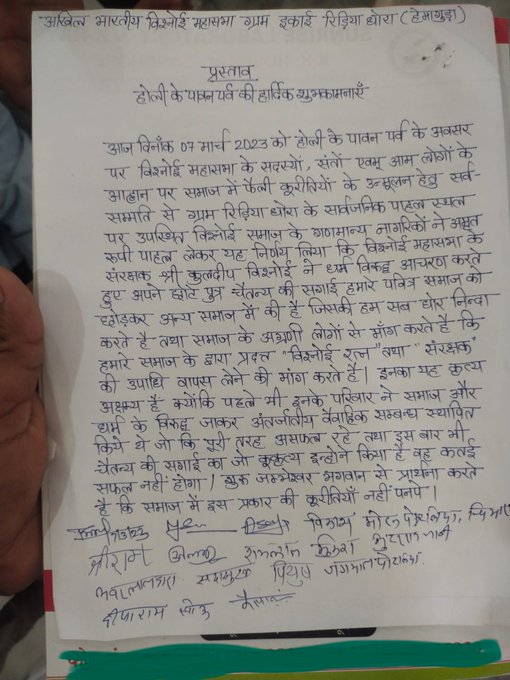 अखिल भारतीय विश्नोई महासभा ग्राम इकाई रिड़िया धोरा (हेमागुड़ा)
प्रस्ताव
होली के पावन पर्व की हार्दिक शुभकामनाएँ
आज दिनाँक 07 मार्च 2023 को होली के पावन पर्व के अवसर
पर विश्नोई महासभा के सदस्यों, संतों एवम् आम लोगों के
आह्वान पर समाज में फैली कुरीतियों के उन्मूलन हेतु सर्व-
सम्मति से ग्राम रिड़िया धोरा के सार्वजनिक पाहल स्थल
पर उपस्थित विश्नोई समाज के गणमान्य नागरिकों ने अमृत
रूपी पाहल लेकर यह निर्णय लिया कि विश्नोई महासभा के
संरक्षक श्री कुलदीप विश्नोई ने धर्म विरुद्ध आचरण करते
हुए अपने छोटे पुत्र चैतन्य की सगाई हमारे पवित्र समाज को
छोड़कर अन्य समाज में की है जिसकी हम सब घोर निन्दा
करते है तथा समाज के अग्रणी लोगों से माँग करते है कि
हमारे समाज के द्वारा प्रदत्त "विश्नोई रत्न" तथा "संरक्षक"
की उपाधि वापस लेने की मांग करते है। इनका यह कृत्य
अक्षम्य है क्योंकि पहले भी इनके परिवार ने समाज और
धर्म के विरुद्ध जाकर अंतर्जातीय वैवाहिक सम्बन्ध स्थापित
किये थे जो कि पूरी तरह असफल रहे तथा इस बार भी
चैतन्य की सगाई का जो कुकृत्य इन्होने किया है वह कतई
सफल नहीं होगा। गुरु जम्भेश्वर भगवान से प्रार्थना करते
है कि समाज में इस प्रकार की कुरीतियाँ नहीं पनपे।
श्रीराम
पियुष
दीपाराम